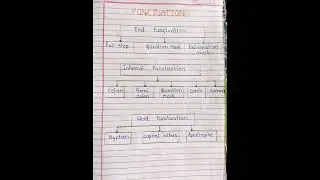 PUNCTUATION
End Punctuation
Full stop Question mark Exclamation mark
Internal Punctuation
Colon Semi colon Question mark Dash
Word Punctuation
Hyphen Capital letters Apostrophe